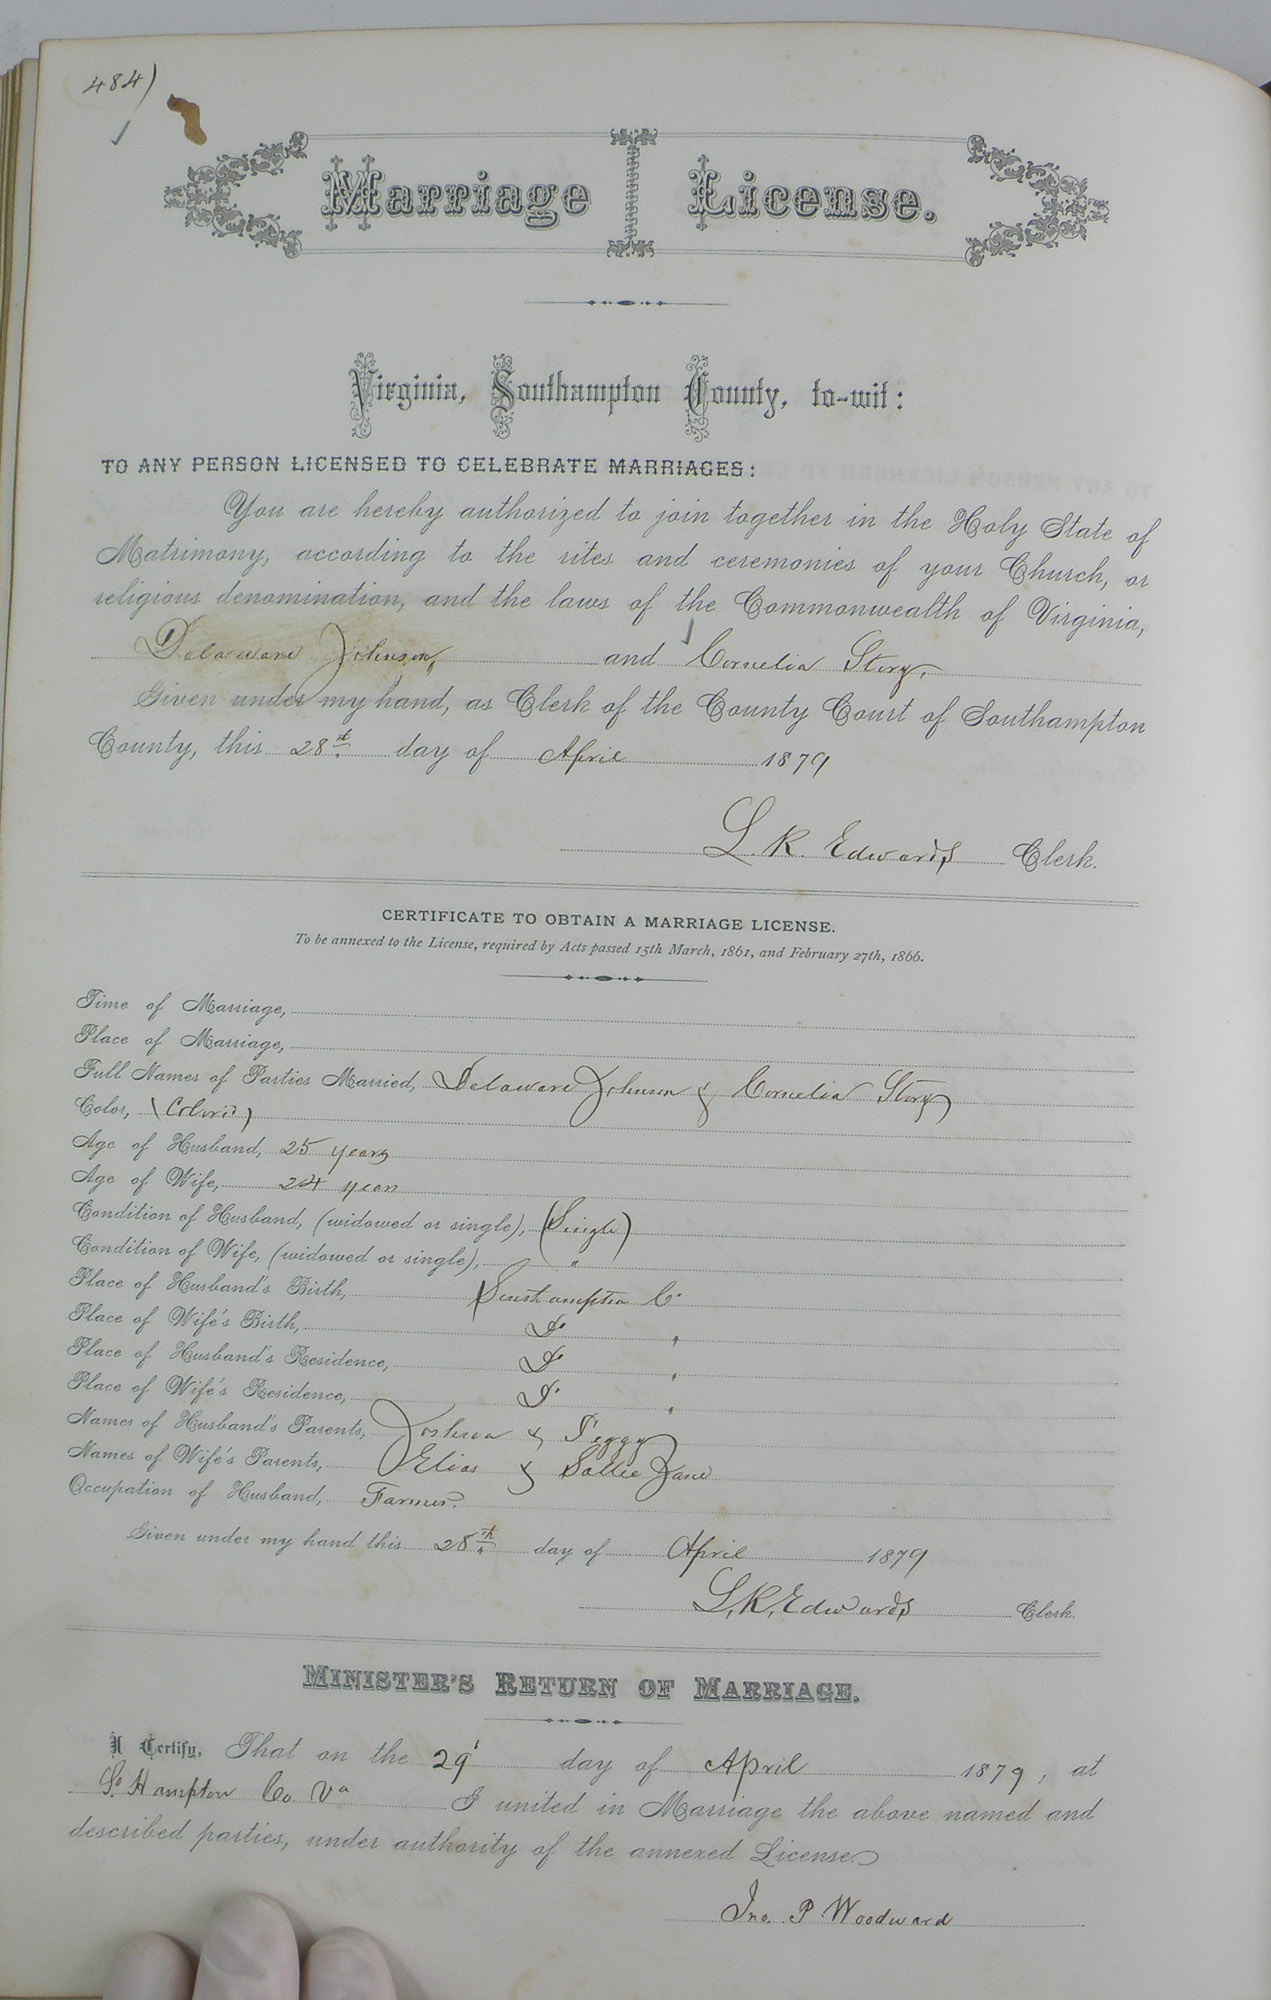 484)
Marriage License.
Virginia, Southampton County, to-wit:
TO ANY PERSON LICENSED TO CELEBRATE MARRIAGES:
You are hereby authorized to join together in the Holy State of
Matrimony, according to the rites and ceremonies of your Church, or
religious denomination, and the laws of the Commonwealth of Virginia,
Delaware Johnson, and Cornelia Story,
Given under my hand, as Clerk of the County Court of Southampton
County, this 28th day of April 1879
L. R. Edwards Clerk.
CERTIFICATE TO OBTAIN A MARRIAGE LICENSE.
To be annexed to the License, required by Acts passed 15th March, 1861, and February 27th, 1866.
Time of Marriage,
Place of Marriage,
Full Names of Parties Married, Delaware Johnson & Cornelia Story
Color, (Colored)
Age of Husband, 25 years
Age of Wife, 24 years
Condition of Husband, (widowed or single), (Single)
Condition of Wife, (widowed or single), "
Place of Husband's Birth, Southampton Co
Place of Wife's Birth, Do "
Place of Husband's Residence, Do "
Place of Wife's Residence, Do "
Names of Husband's Parents, Joshua & Peggy
Names of Wife's Parents, Elias & Sallie Jane
Occupation of Husband, Farmer.
Given under my hand this 28th day of April 1879
L. R. Edwards Clerk.
MINISTER'S RETURN OF MARRIAGE.
I Certify, That on the 29 day of April 1879, at
So Hampton Co Va I united in Marriage the above named and
described parties, under authority of the annexed License.
Jno. P Woodward